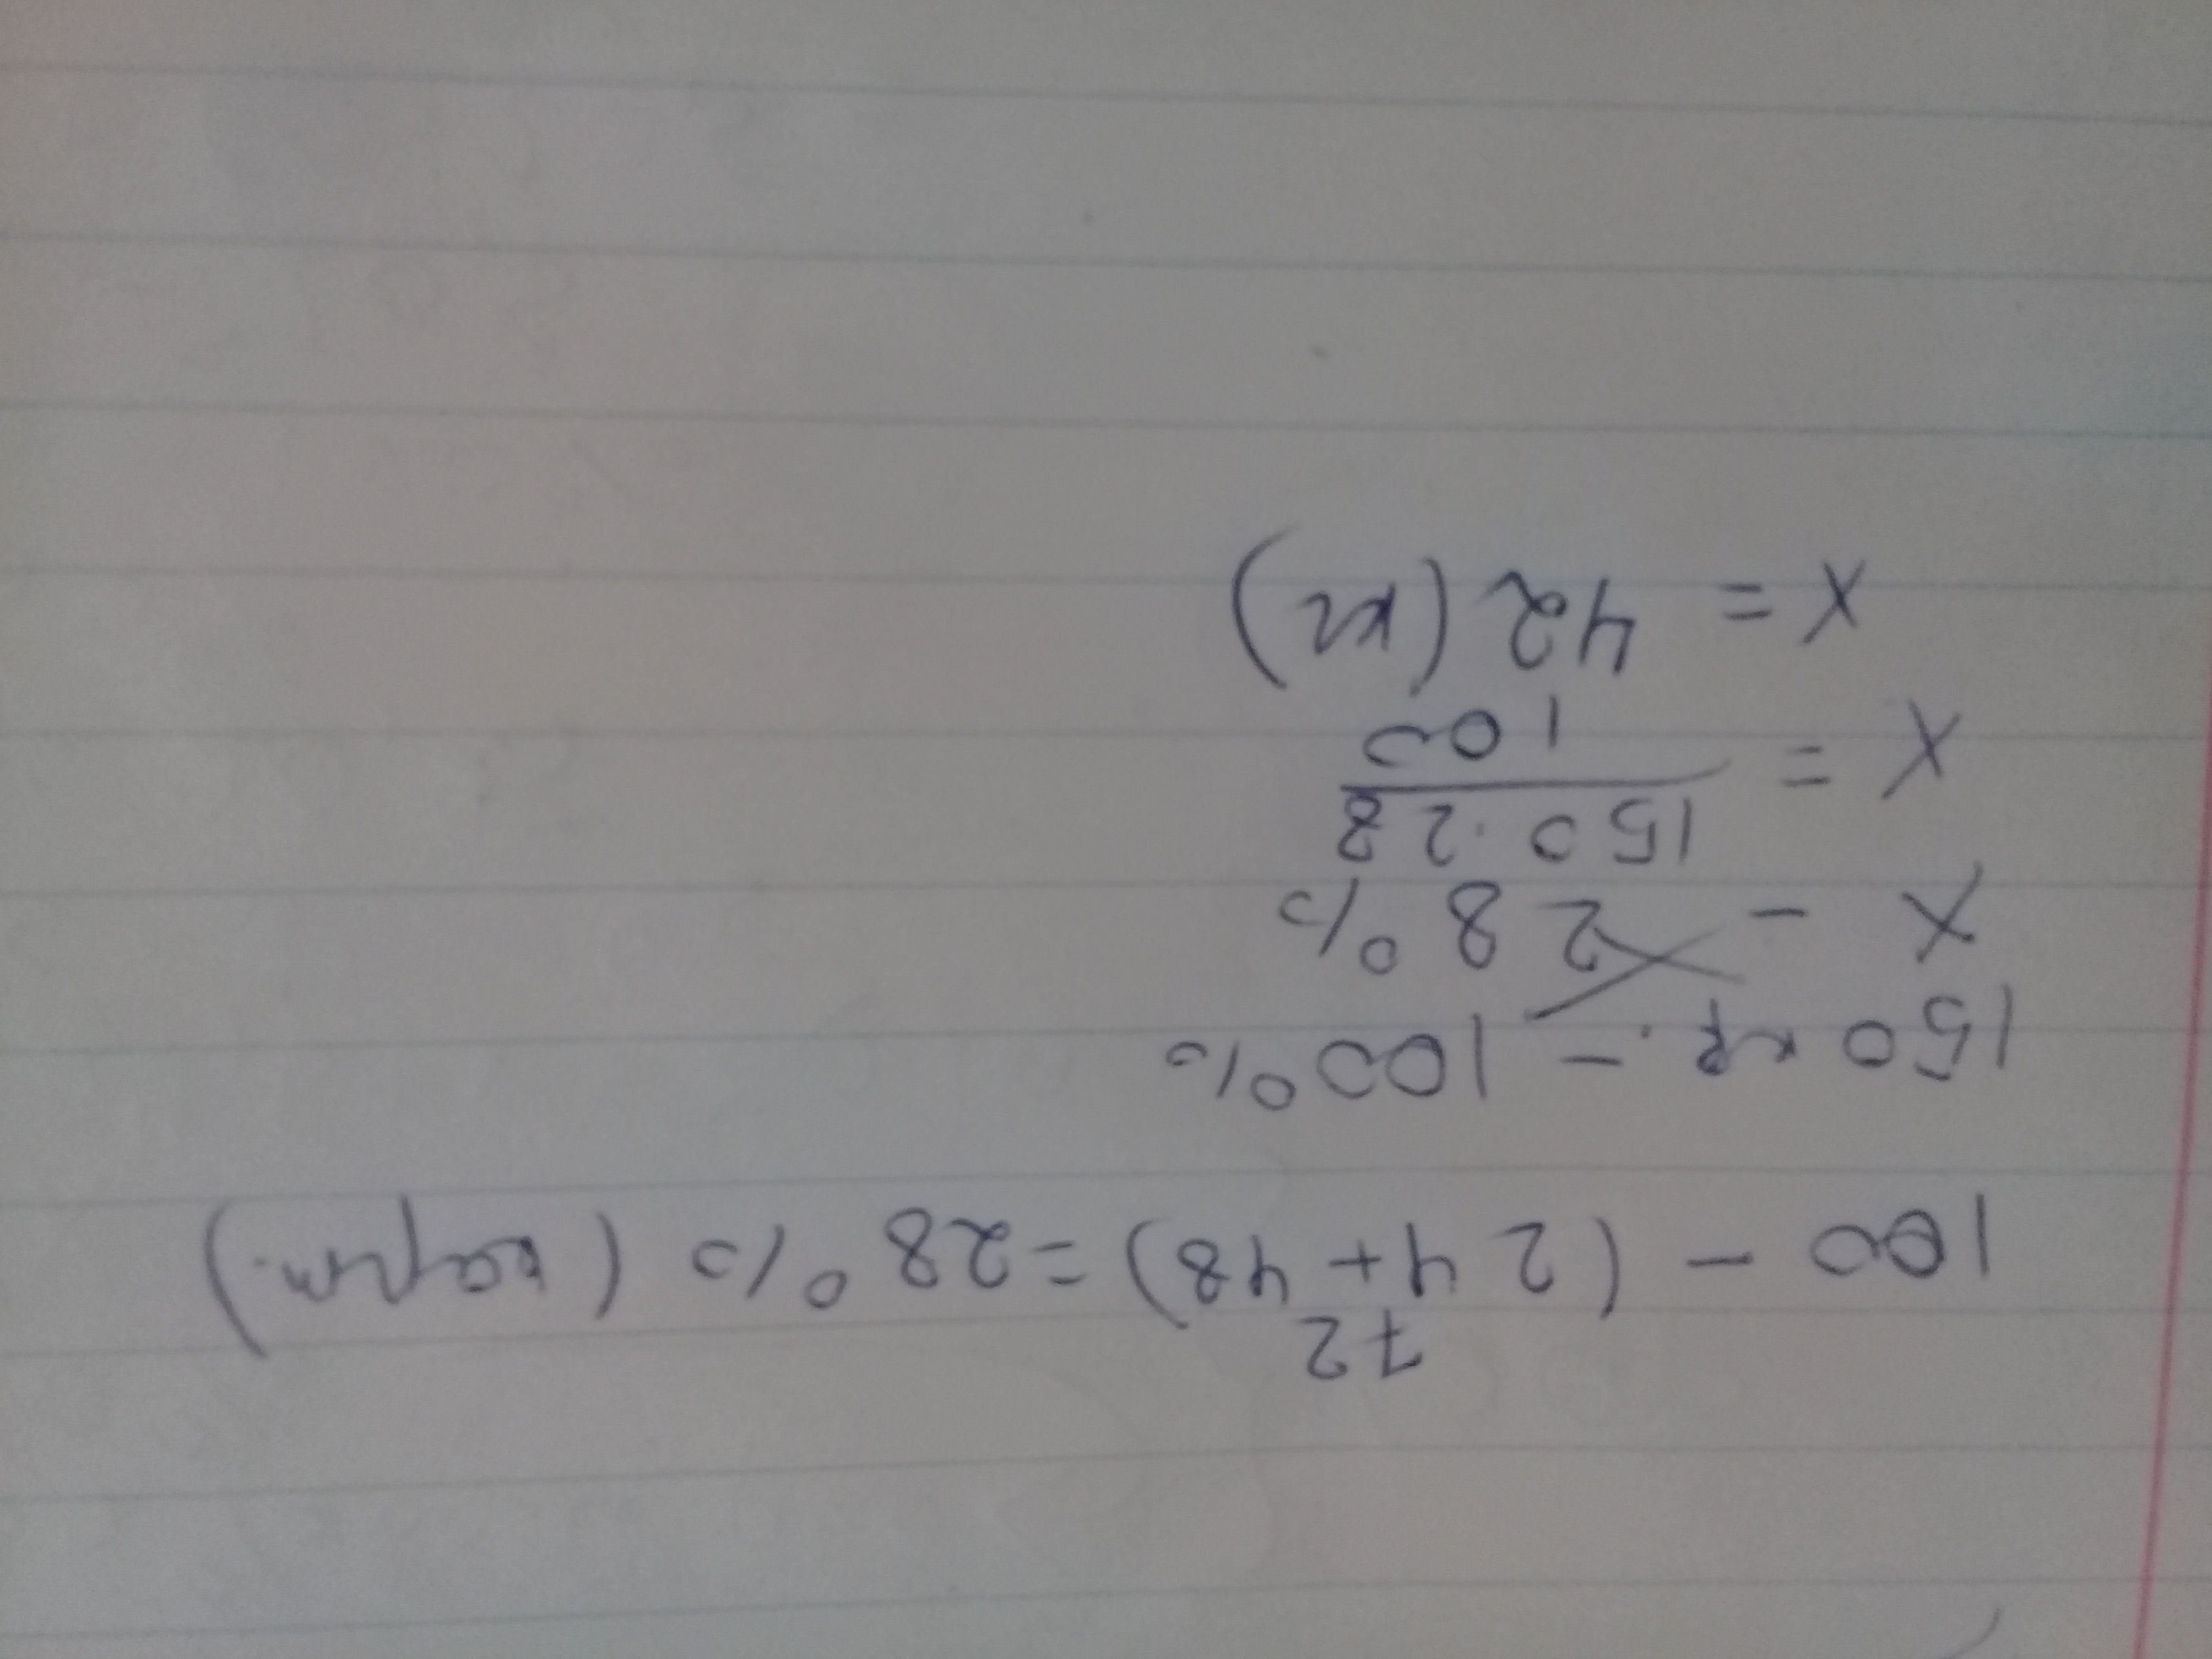 72
100 - (24+48) = 28 % (карт.)
150 кг. - 100%
x - 28%
x = 150·28
100
x = 42 (кг)